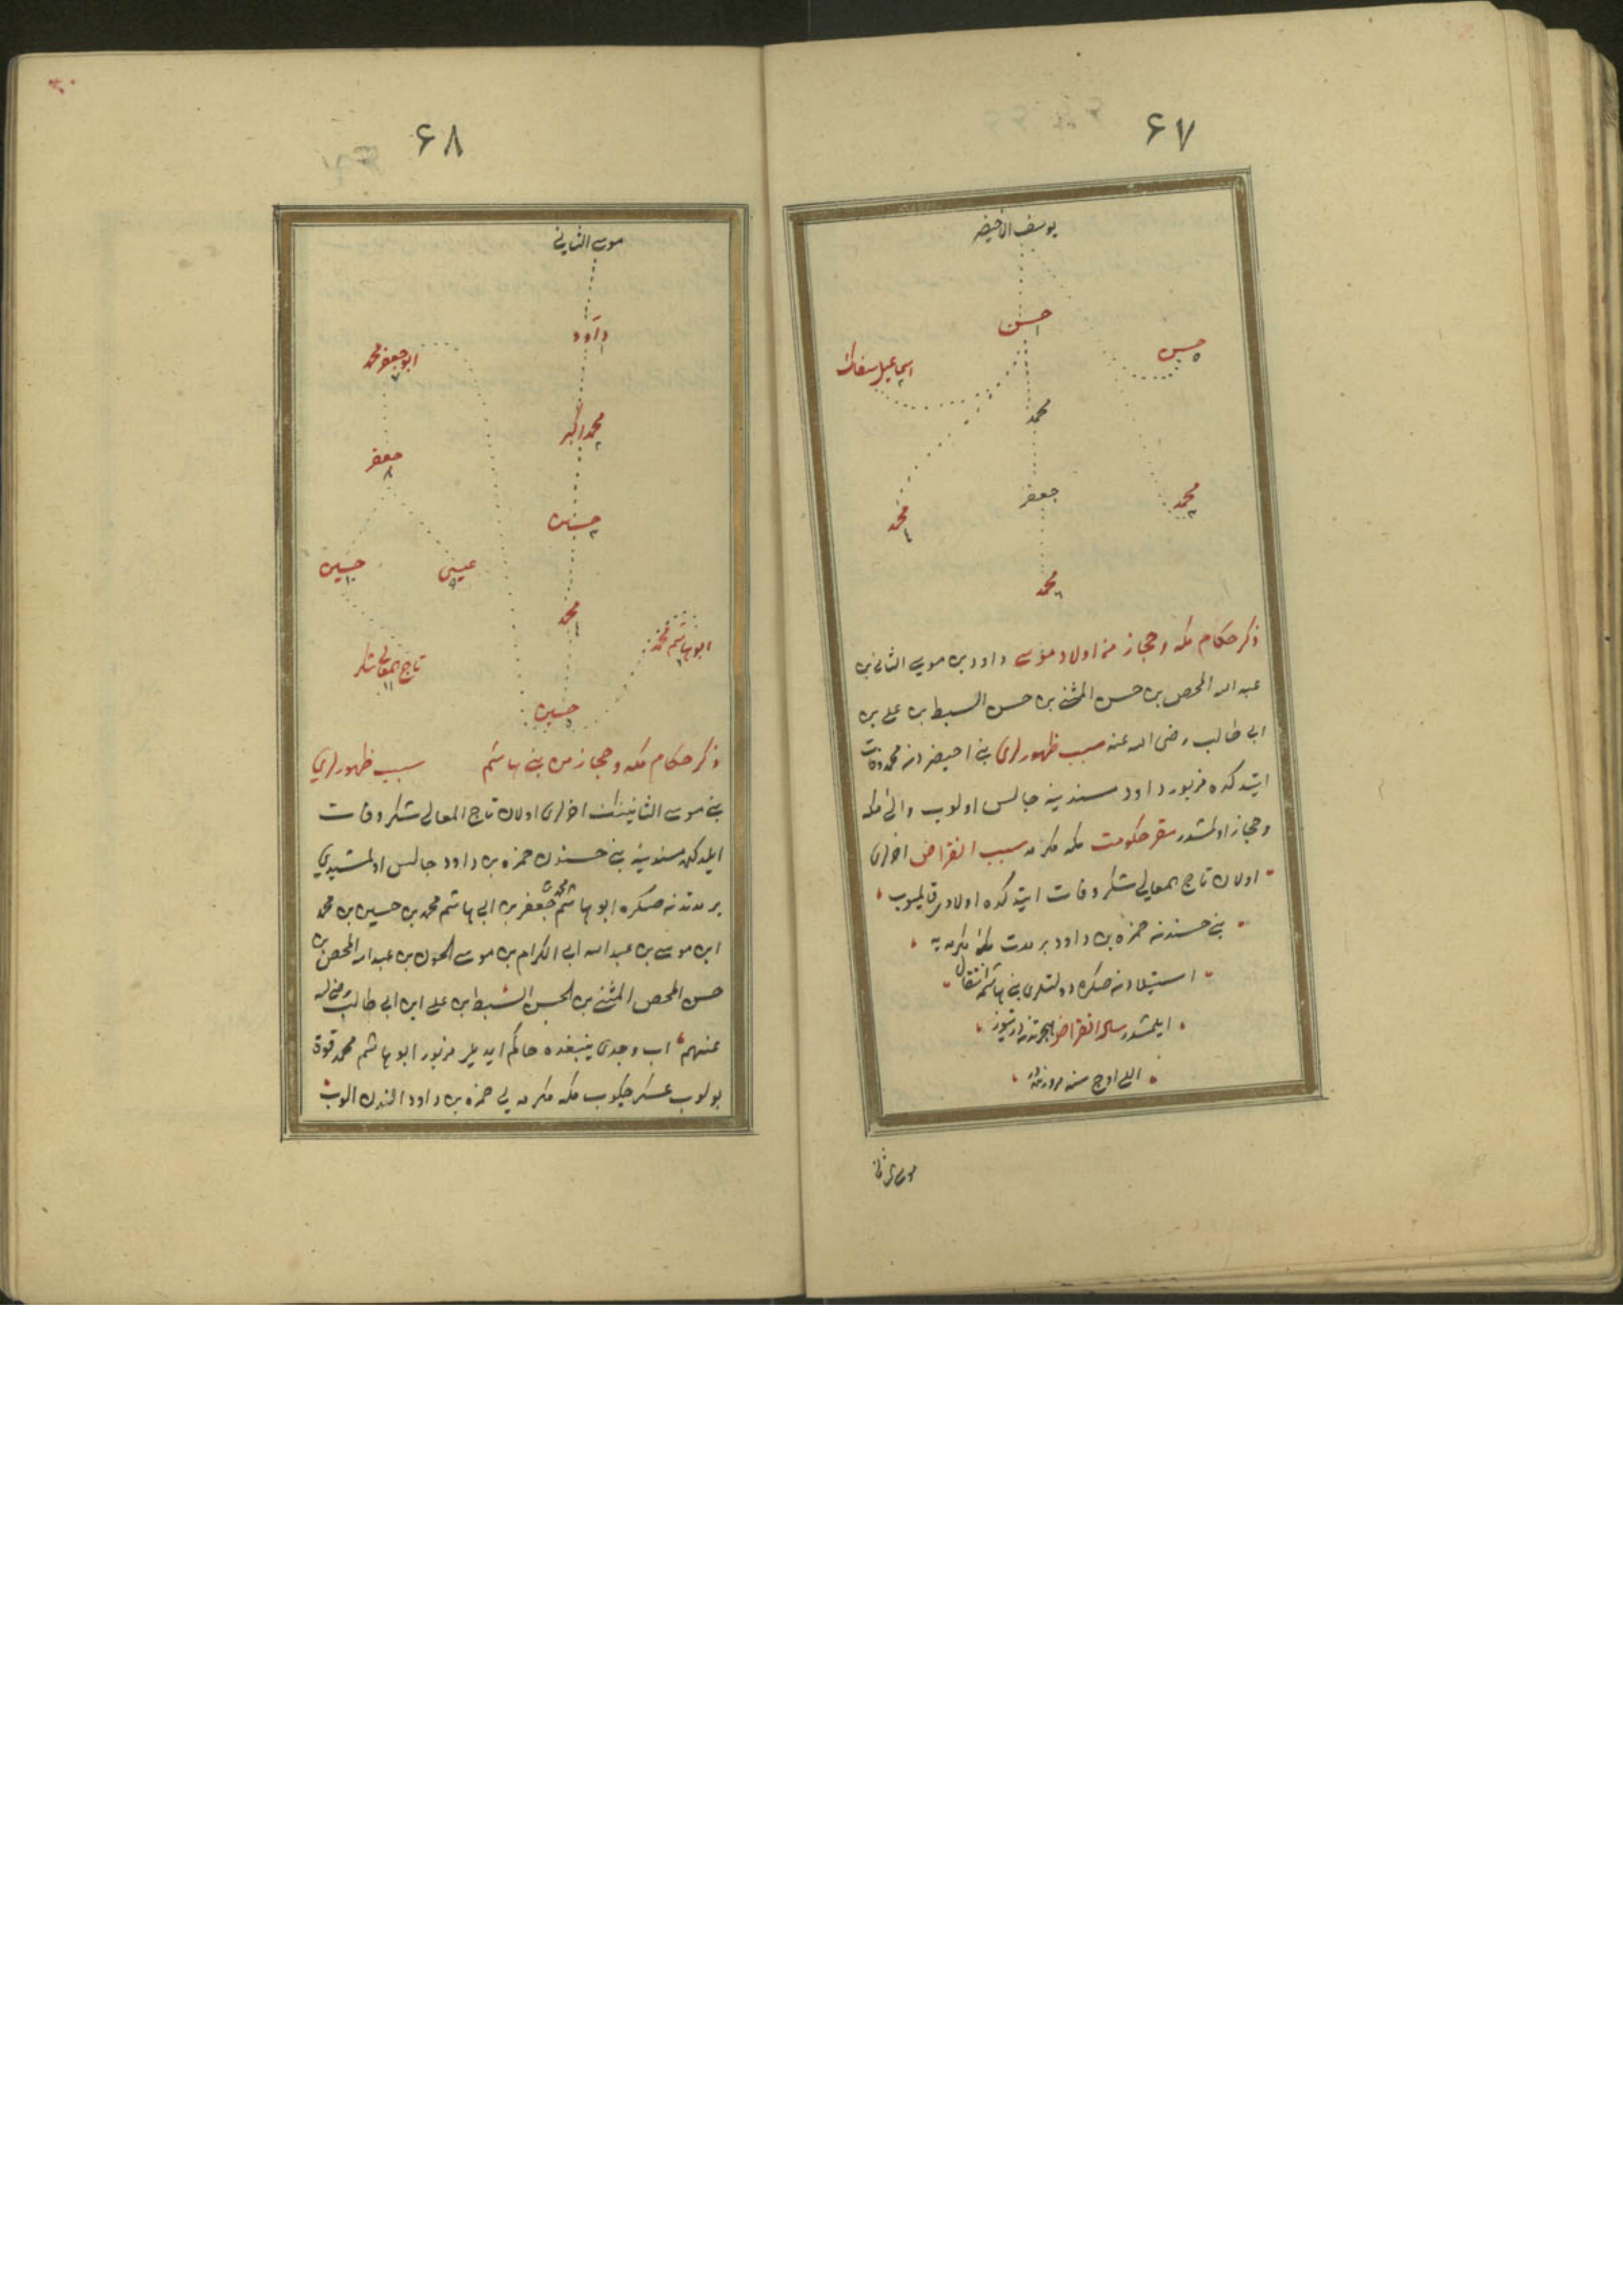 ۶۷
يوسف الاخيضر
حسن
١
حسن
٥
اسماعيل سفاك
٢
محمد
جعفر
محمد
٣
محمد
٤
محمد
٦
ذكر حكام مكه وحجاز من اولاد موسى داود بن موسى الثانى بن
عبد الله المحض بن حسن المثنى بن حسن السبط بن على بن
ابى طالب رضى الله عنه سبب ظهورلرى بنى اخيضردن محمد وفات
ايتدكده مزبور داود مسندينه جالس اولوب والئ مكه
وحجاز اولمشدر مقر حكومت مكه مكرمه سبب انقراض اخرلرى
اولان تاج المعالى شكر وفات ايتدكده اولاد قالميوب
بنى حسندنه حمزه بن داود بر مدت مكۀ مكرمه يه
استيلادنه صكره دولتلرى بنى هاشمه انتقال
ايلمشدر سال انقراض هجرتدنه درتيوز
اللى اوچ سنه مرورنده در
موسى الثانى
۶۸
موسى الثانى
داود
١
ابو جعفر محمد
٧
محمد اكبر
٢
جعفر
٨
حسين
٣
حسين
١٠
عيسى
٩
محمد
٤
ابو هاشم محمد
٦
تاج المعالى شكر
١١
حسين
٥
ذكر حكام مكه وحجاز من بنى هاشم سبب ظهورلرى
بنى موسى الثانينك اخرلرى اولان تاج المعالى شكر وفات
ايلدكده مسندينه بنى حسندن حمزه بن داود جالس اولمشيدى
بر مدتدنه صكره ابو هاشم محمد بن جعفر بن ابى هاشم محمد بن حسين بن محمد
ابن موسى بن عبد الله ابى الكرام بن موسى الجون بن عبد الله المحض بن
حسن المحض المثنى بن الحسن السبط بن على ابن ابى طالب رضى الله
عنهم اب وجدى ينبعده حاكم ايديلر مزبور ابو هاشم محمد قوة
بولوب عسكر چكوب مكه مكرمه يى حمزه بن داود النندن الوب